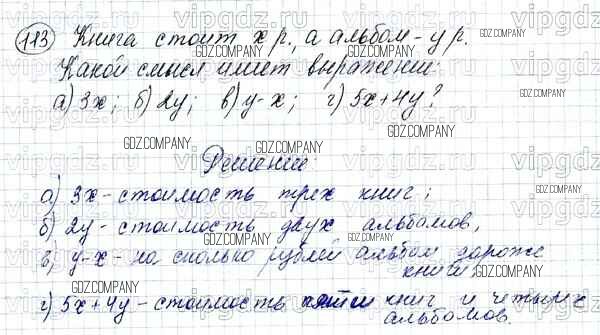 113 Книга стоит x р, а альбом - y р.
Какой смысл имеет выражение:
а) 3x; б) 2y; в) y-x; г) 5x+4y?
Решение:
а) 3x - стоимость трех книг;
б) 2y - стоимость двух альбомов,
в) y-x - на сколько рублей альбом дороже
книги;
г) 5x+4y - стоимость пяти книг и четырех
альбомов.
GDZ.COMPANY
vipgdz.ru